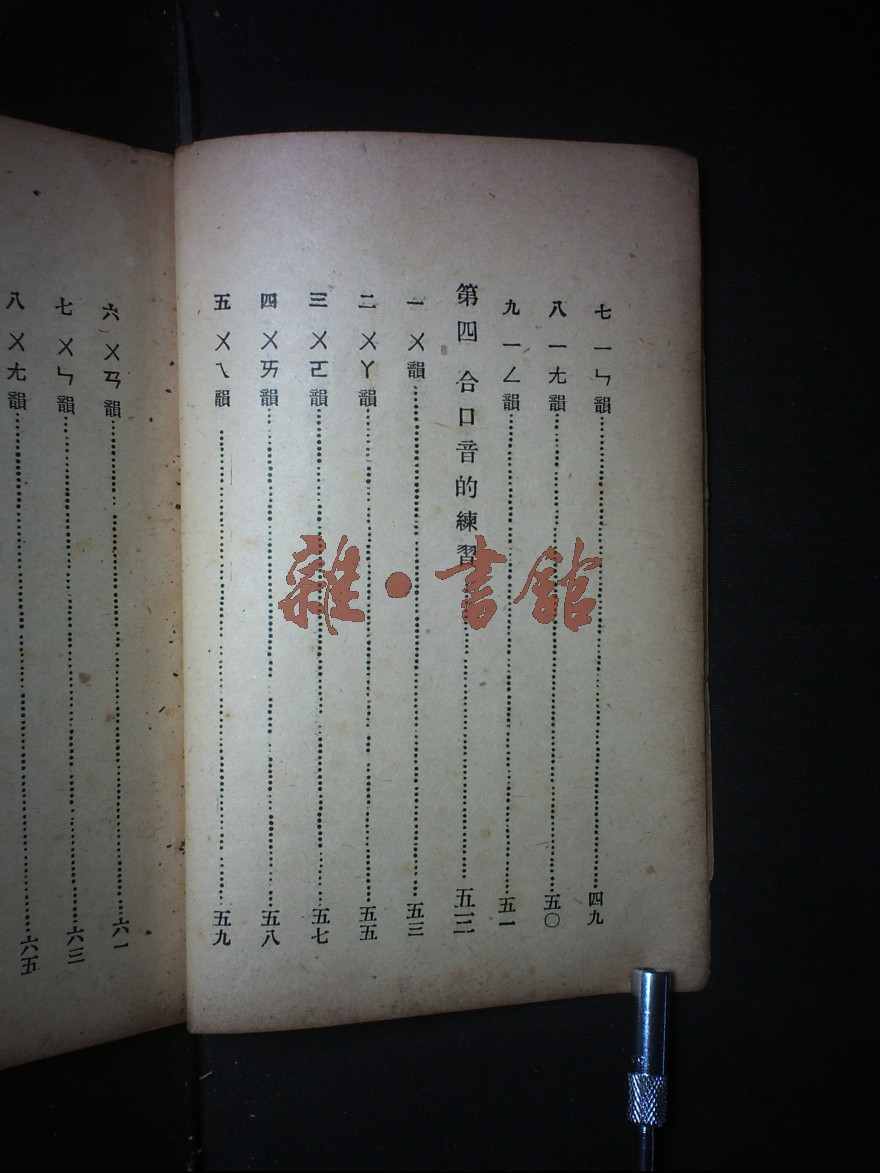 七 ㄧㄣ韻……四九
八 ㄧㄤ韻……五〇
九 ㄧㄥ韻……五一
第四 合口音的練習……五三
一 ㄨ韻……五三
二 ㄨㄚ韻……五五
三 ㄨㄛ韻……五七
四 ㄨㄞ韻……五八
五 ㄨㄟ韻……五九
六 ㄨㄢ韻……六一
七 ㄨㄣ韻……六三
八 ㄨㄤ韻……六五
雜·書館